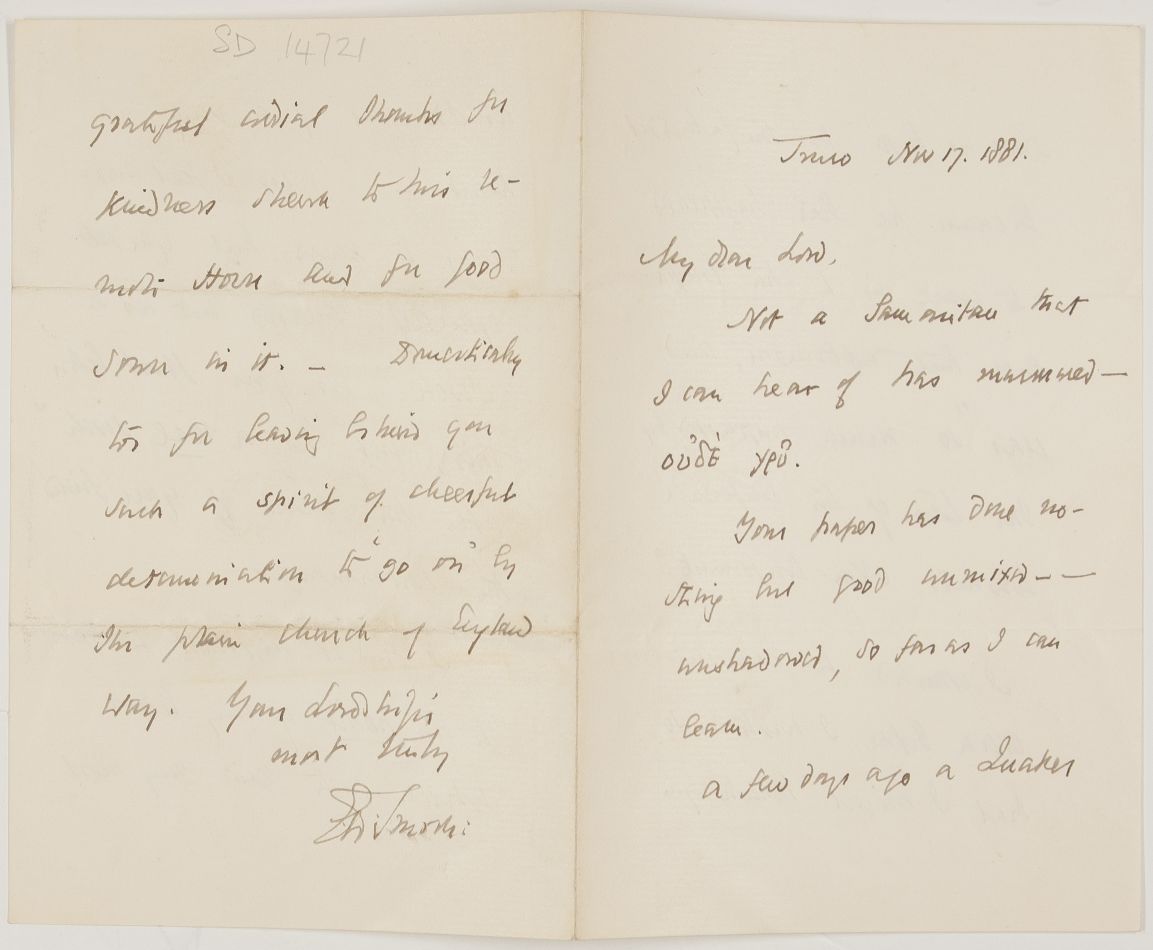 Truro Nov 17. 1881.
My dear Lord,
Not a Samaritan that
I can hear of has murmured—
οὐδὲ γρῦ.
Your paper has done no-
thing but good unmixed——
unshadowed, so far as I can
learn.
A few days ago a Quaker
SD 14721
grateful cordial thanks for
kindness shewn to his re-
mote Horn and for good
sown in it. — Domestically
too for leaving behind you
such a spirit of cheerful
determination to "go on" by
the plain church of England
way. Your Lordship's
most truly